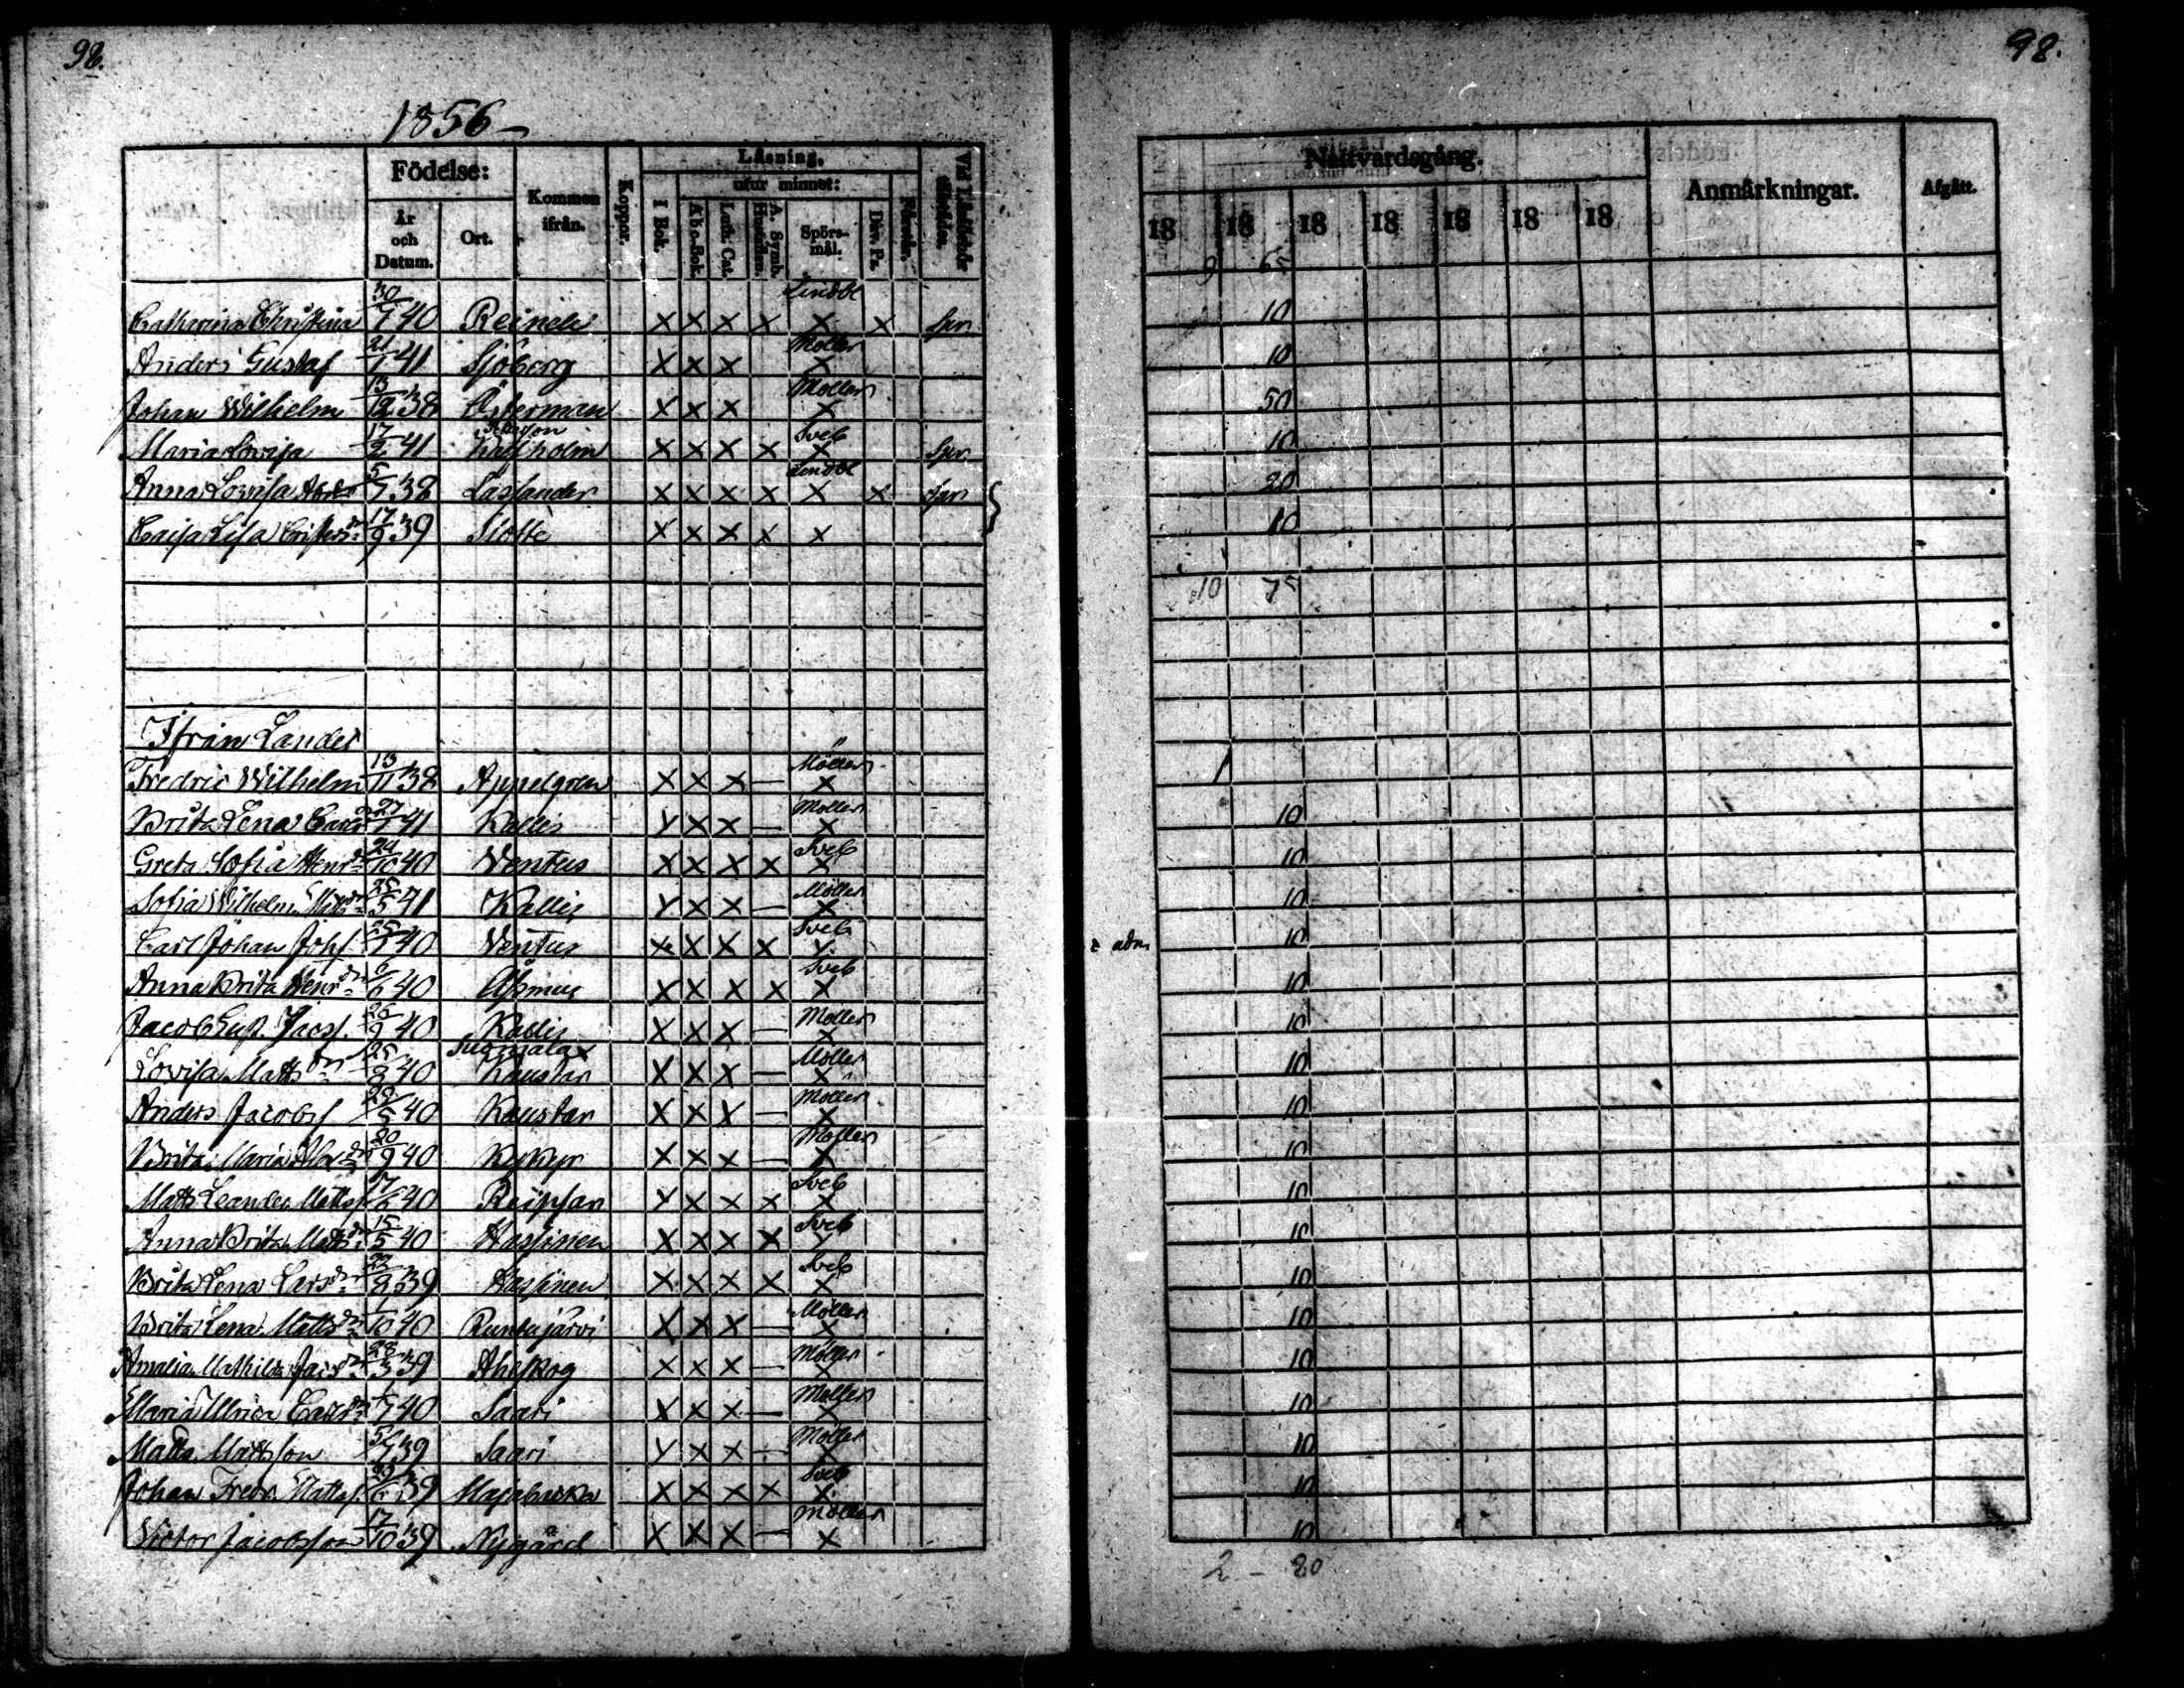 98.
1856
Födelse: Kommen ifrån. Koppor. Läsning, Vid Läsförhör tillstädes.
utur minnet:
År och Datum. Ort. I Bok. Abc-Bok. Luth. Cat. A. Symb. Hustaflan. Spörsmål. Dav. Ps. Förstår.
Catharina Christina 30/7 40 Reinele × × × × Lindbl × ×
Anders Gustaf 21/1 41 Sjöberg × × × Möller ×
Johan Wilhelm 13/12 38 Österman × × × Möller ×
Maria Lovisa 17/2 41 Kallholm × × × × Sveb ×
Anna Lovisa 5/7 38 Lassander × × × × Lindbl × ×
Caisa Lisa 17/9 39 Slotte × × × × ×
Ifrån Landet
Fredric Wilhelm 13/11 38 Appelgren × × × — Möller ×
Brita Lena Carlsdr 27/1 41 Kallis × × × — Möller ×
Greta Sofia Henrsdr 24/10 40 Ventus × × × × Sveb ×
Sofia Wilhelm. Mattsdr 25/5 41 Kallis × × × — Möller ×
Carl Johan Johs. 40 Ventus × × × × Sveb ×
Anna Brita Henrsdr 6/6 40 Åsmus × × × × Sveb ×
Jacob Gust. Jacs. 26/9 40 Kallis × × × — Möller ×
Lovisa Mattsdr 25/8 40 Kaustar × × × — Möller ×
Anders Jacobs 29/5 40 Kaustar × × × — Möller ×
Brita Maria 30/9 40 Kykyr × × × — Möller ×
Matts Leander Mattss. 17/6 40 Reipsar × × × × Sveb ×
Anna Brita Mattsdr 15/5 40 Hassinen × × × × Sveb ×
Brita Lena Larsdr 23/8 39 Hassinen × × × × Sveb ×
Brita Lena Mattsdr 1/10 40 Runtujärvi × × × — Möller ×
Amalia Mathilda Jacsdr 28/3 39 Ahlskog × × × — Möller ×
Maria Ulrica Carlsdr 40 Saari × × × — Möller ×
Matts Mattsson 39 Saari × × × — Möller ×
Johan Fredr. Mattss. 29/6 39 Majabacka × × × × Sveb ×
Victor Jacobsson 17/10 39 Nygård × × × — Möller ×
98.
Nattvardsgång. Anmärkningar. Afgått.
18 18 18 18 18 18 18
9 65
10
10
50
10
20
10
10 75
1
10
10
10
adm. 10
10
10
10
10
10
10
10
10
10
10
10
10
10
10
2 - 80